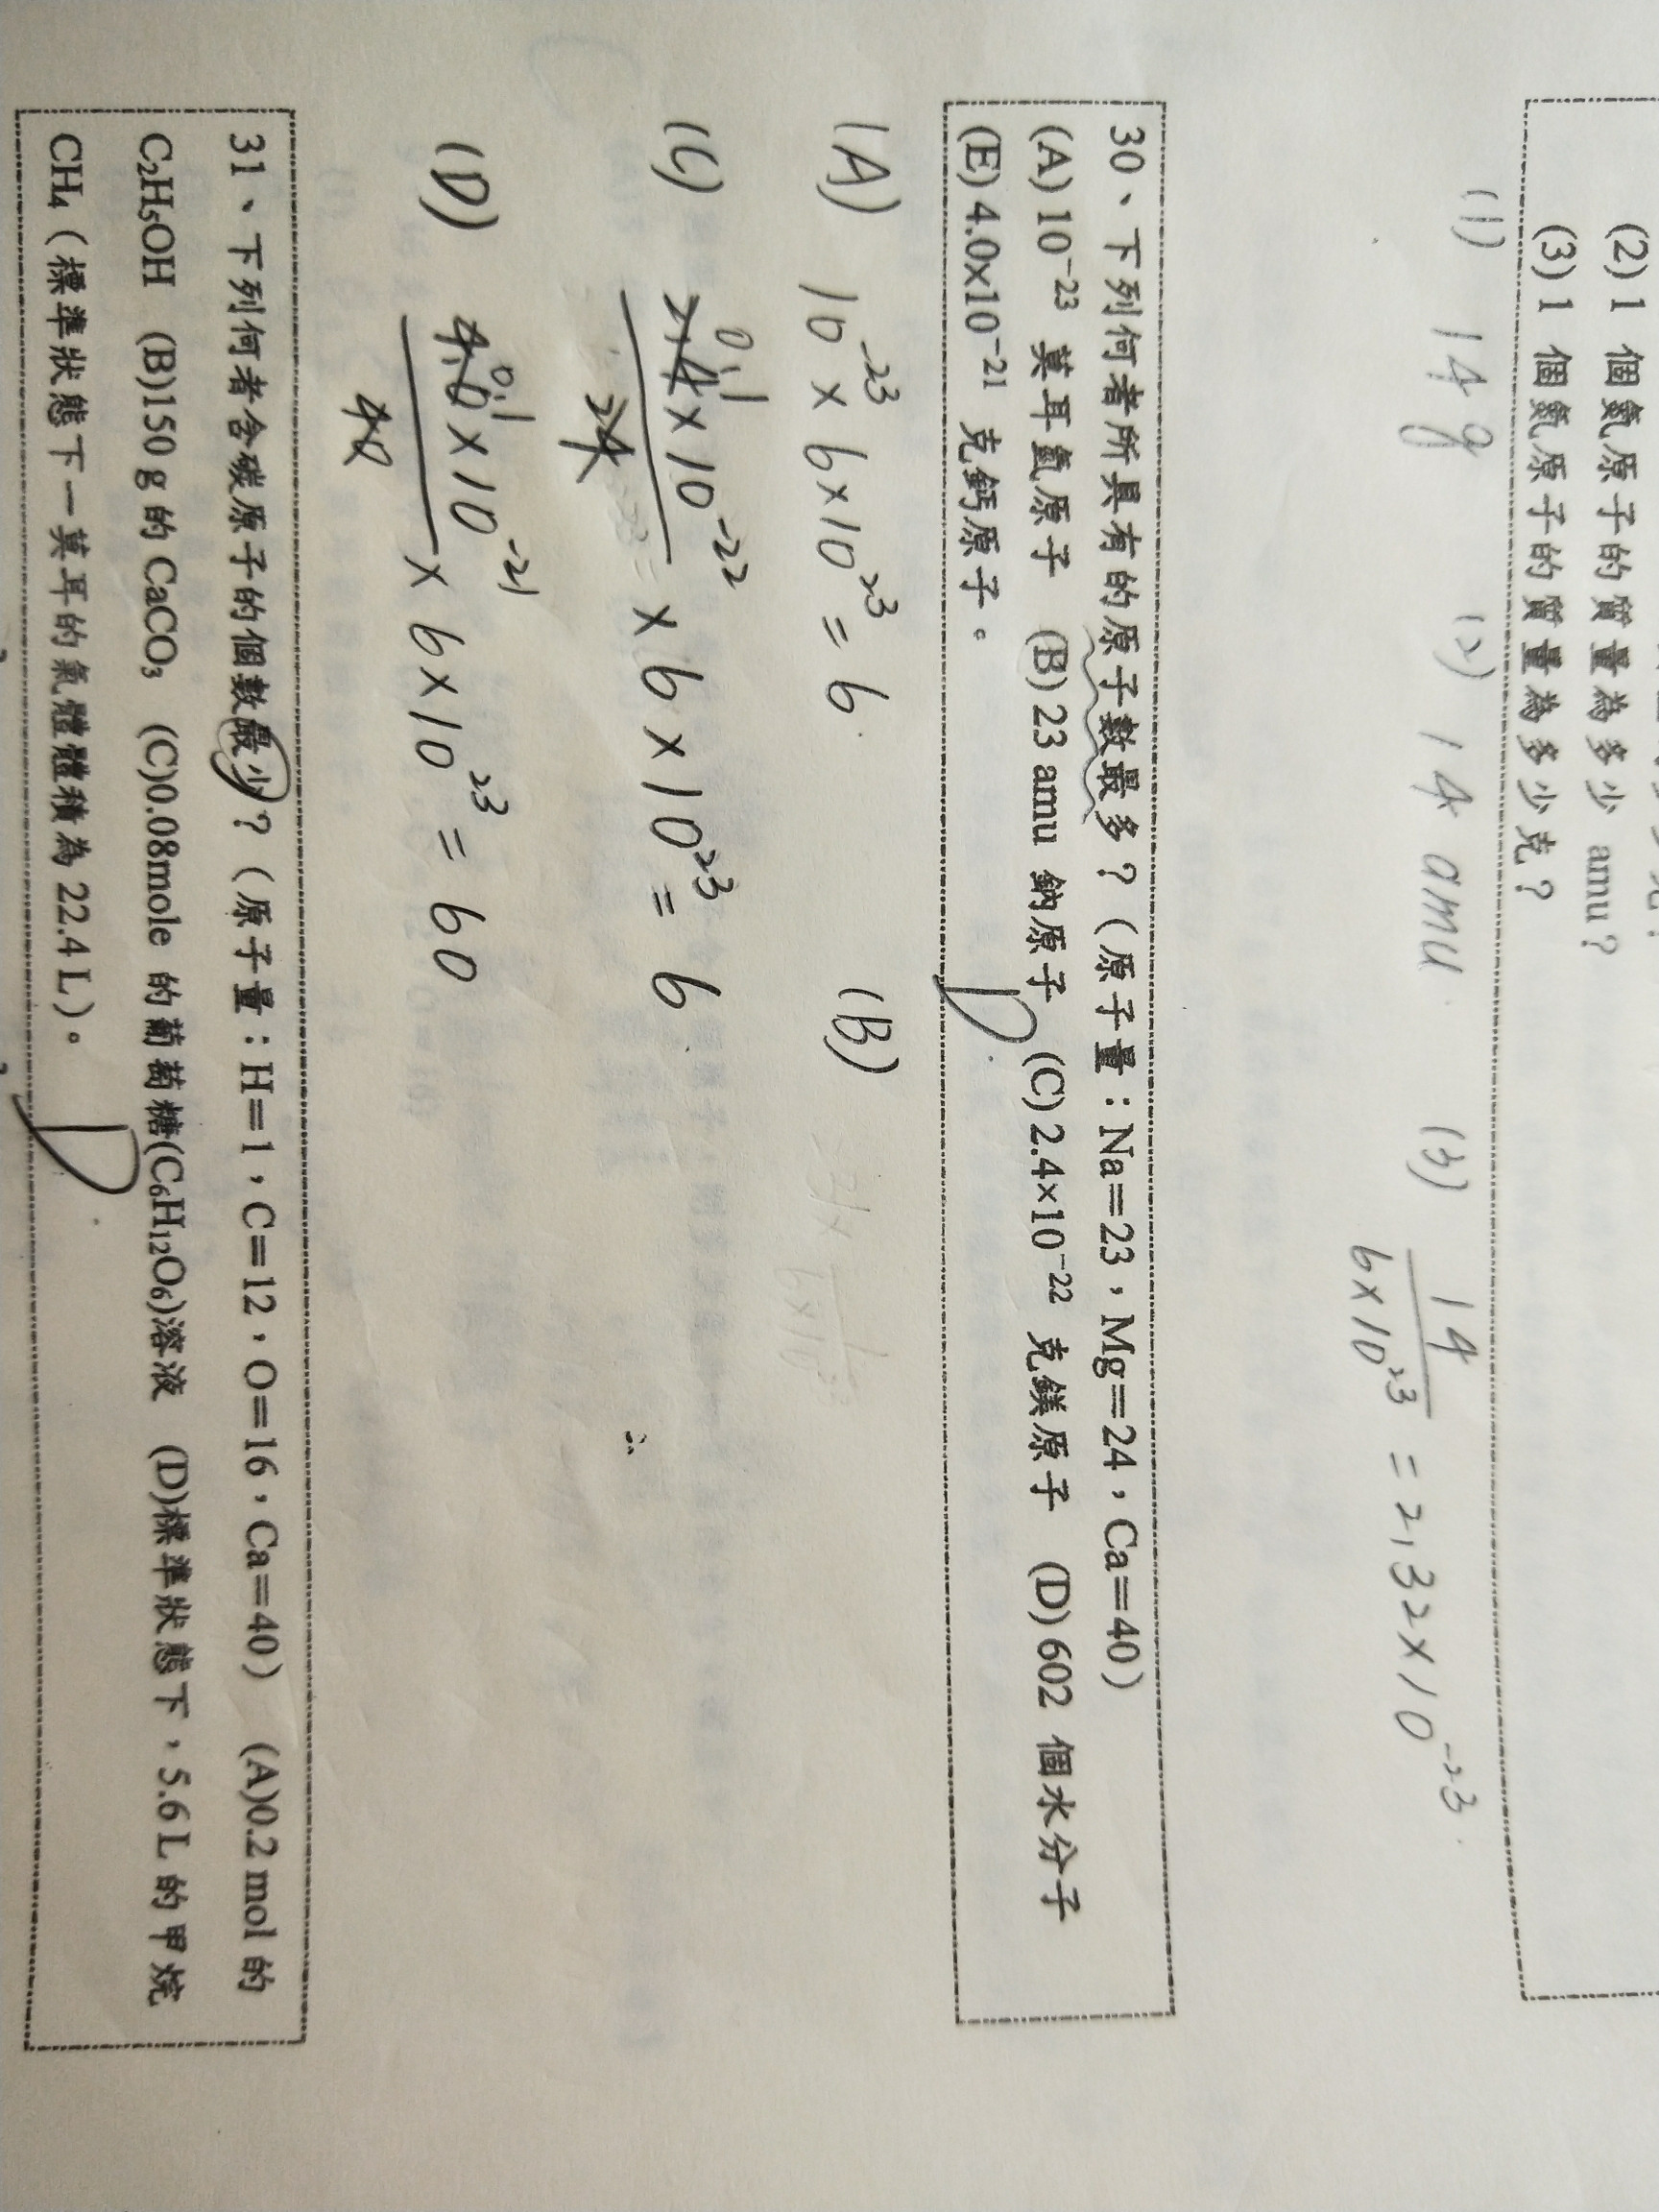 (2) 1 個氮原子的質量為多少 amu？
(3) 1 個氮原子的質量為多少克？
(1) 14 g (2) 14 amu (3) 14 / 6×10²³ = 2.32×10⁻²³
30、下列何者所具有的原子數最多？（原子量：Na＝23，Mg＝24，Ca＝40）
(A) 10⁻²³ 莫耳氫原子 (B) 23 amu 鈉原子 (C) 2.4×10⁻²² 克鎂原子 (D) 602 個水分子
(E) 4.0x10⁻²¹ 克鈣原子。 D
(A) 10⁻²³ × 6×10²³ = 6 (B)
(C) 2.4 0.1 ×10⁻²² / 24 × 6×10²³ = 6
(D) 4.0 0.1 ×10⁻²¹ / 40 × 6×10²³ = 60
31、下列何者含碳原子的個數最少？（原子量：H＝1，C＝12，O＝16，Ca＝40） (A)0.2 mol 的
C₂H₅OH (B)150 g 的 CaCO₃ (C)0.08mole 的葡萄糖(C₆H₁₂O₆)溶液 (D)標準狀態下，5.6 L 的甲烷
CH₄（標準狀態下一莫耳的氣體體積為 22.4 L）。 D